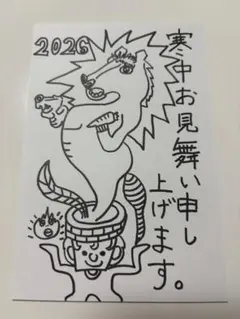 2026
寒中お見舞い申し
上げます。